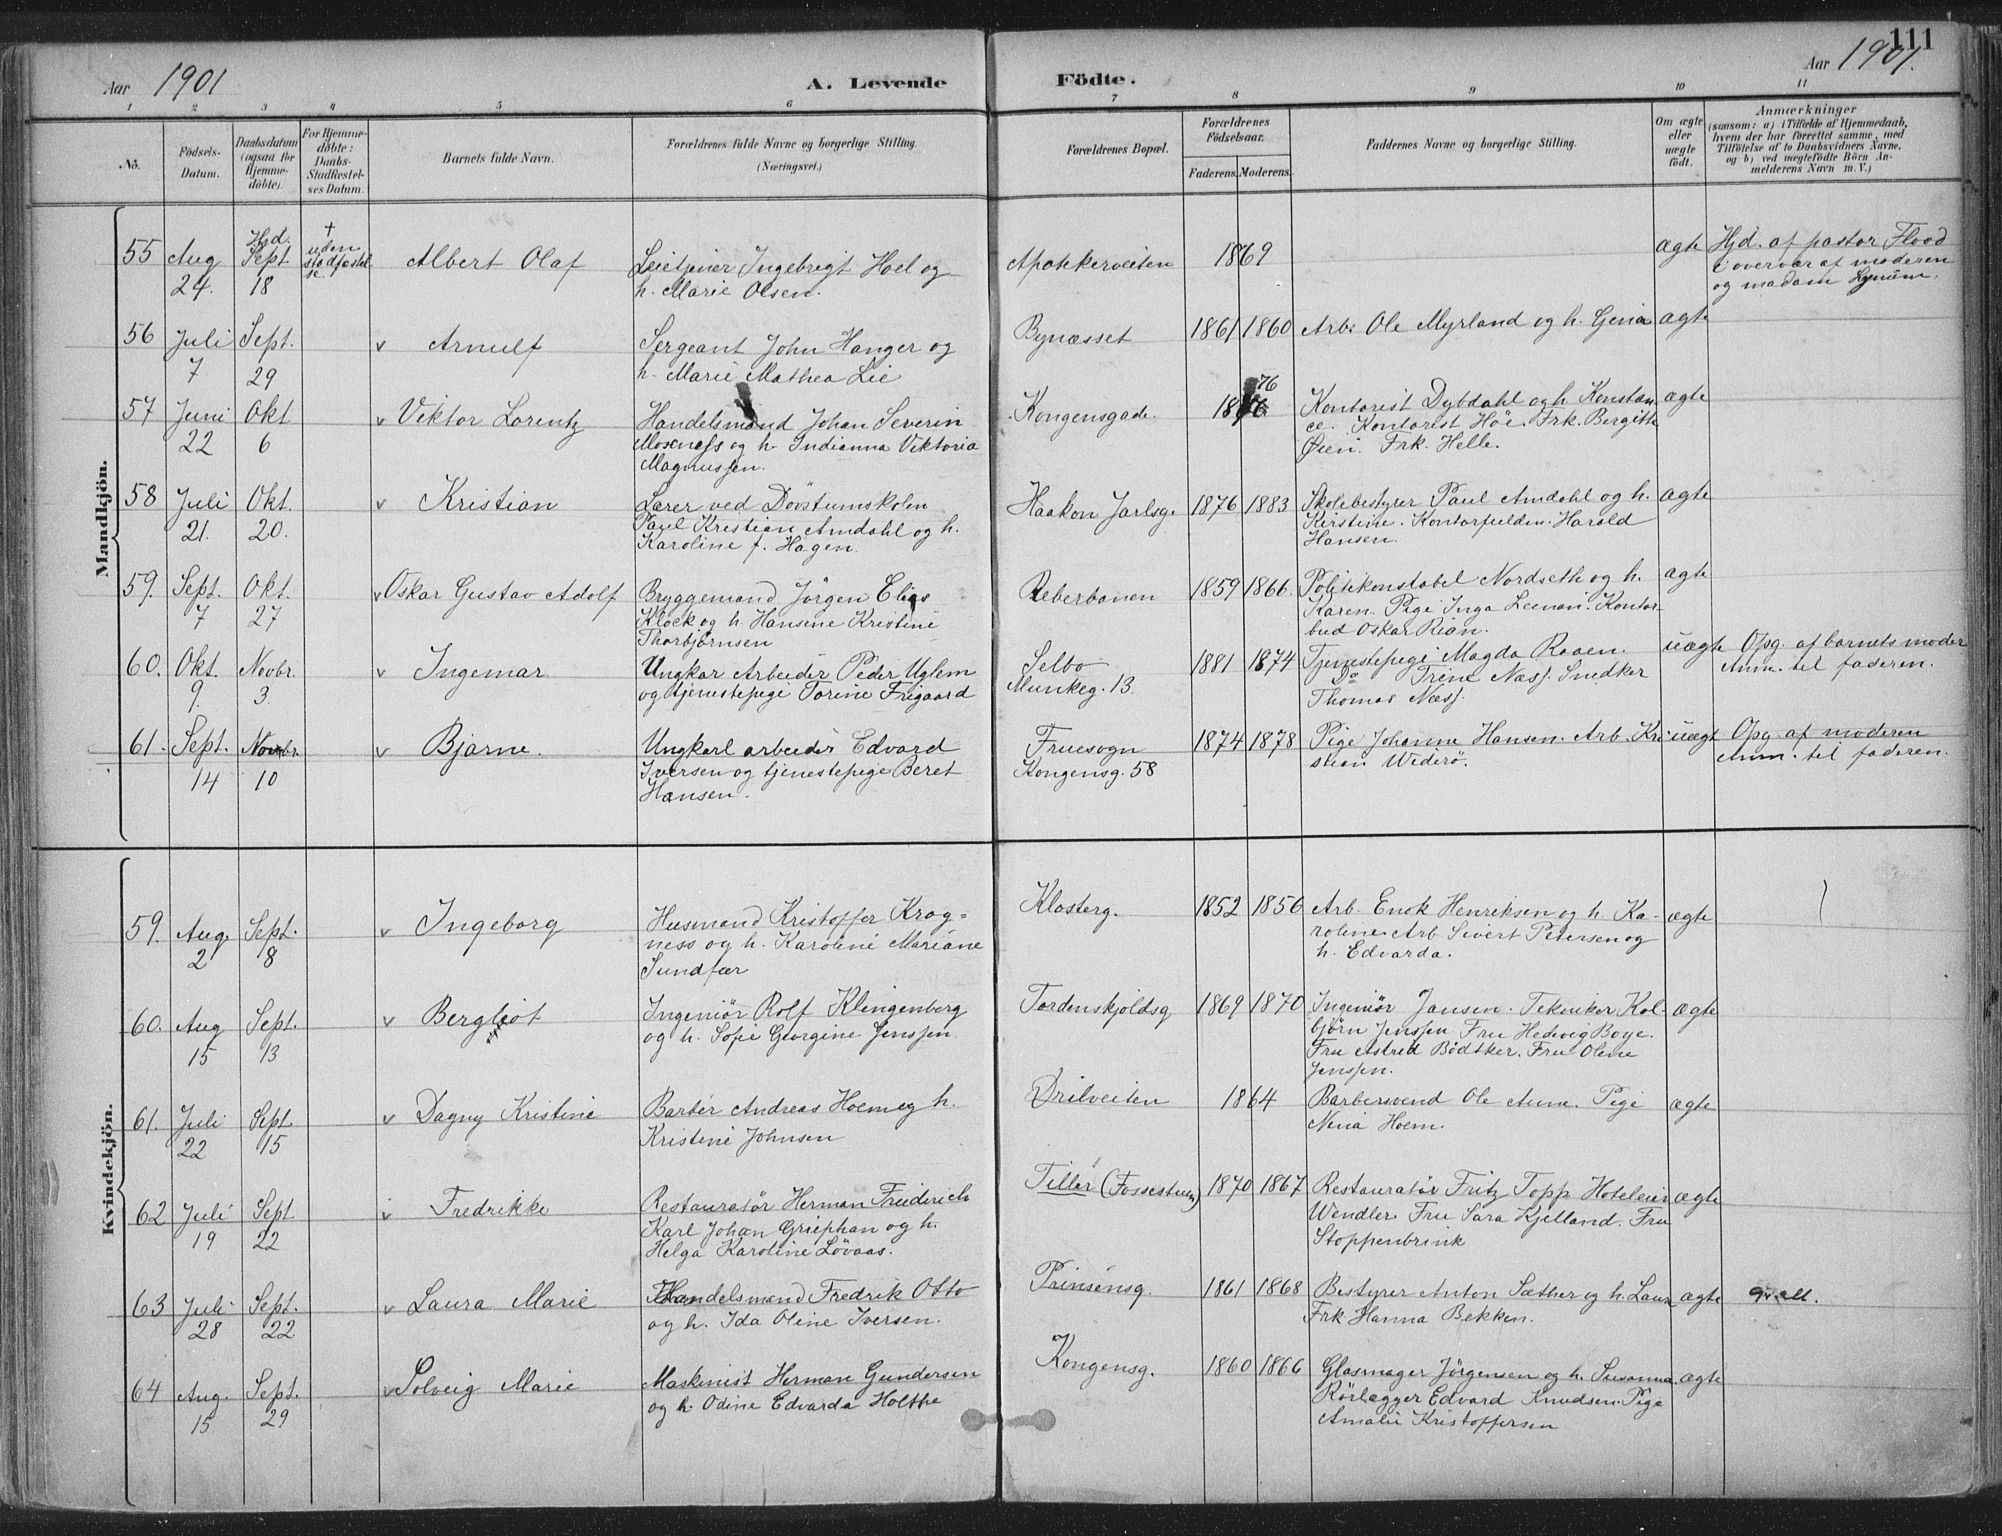 111
Aar 1901 A. Levende Födte. Aar 1901.
1 2 3 4 5 6 7 8 9 10 11
No. Födsels-Datum. Daabsdatum (ogsaa for Hjemmedöbte). For Hjemmedöbte: Daabs-Stadfæstelses Datum. Barnets fulde Navn. Forældrenes fulde Navne og borgerlige Stilling. (Næringsvei.) Forældrenes Bopæl. Forældrenes Födselsaar. Faderens. Moderens. Faddernes Navne og borgerlige Stilling. Om ægte eller uægte födt. Anmærkninger (saasom: a) i Tilfælde af Hjemmedaab, hvem der har forrettet samme, med Tilföielse af to Daabsvidners Navne, og b) ved uægtefödte Börn Anmelderens Navn m. V.)
Mandkjön.
55 Aug 24. Hjd. Sept 18 † uden stadfæstelse. Albert Olaf
Leietjener Ingebrigt Hoel og
h. Marie Olsen.
Apothekerveiten 1869 ægte
Hjd. af pastor Flood
i overvær af moderen
og madam
56 Juli 7 Sept. 29 v Arnulf
Sergeant John Hanger og
h. Marie Mathea Lie
Bynæsset 1861 1860 Arb. Ole Myrland og h. Gina ægte
57 Juni 22 Okt 6 v Viktor Lorentz
Handelsmand Johan Severin
Mosness og h. Indianna Viktoria
Magnussen.
Kongensgade. 1876
Kontorist Dybdahl og h Konstan
ce. Kontorist Höe. Frk. Bergitte
Øien. Frk. Helle.
ægte
58 Juli 21. Okt. 20. v Kristian
Lærer ved Døvstumskolen
Paul Kristian Amdahl og h.
Karoline f. Hagen.
Haakon Jarlsg. 1876 1883
Skolebestyrer Paul Amdahl og h.
Kerstine. Kontorfuldm. Harald
Hansen.
ægte
59. Sept. 7 Okt 27 v Oskar Gustav Adolf
Bryggemand Jörgen Elias
Klock og h. Hansine Kristine
Thorbjørnsen
Reberbanen 1859 1866.
Politikonstabel Nordseth og h.
Karen. Pige Inga Leman. Kontor
bud Oskar Rian.
ægte
60. Okt. 9. Novbr. 3. v Ingemar
Ungkar Arbeider Peder Uglem
og tjenestepige Torine Frigaard
Selbo
Munkeg. 13.
1881 1874
Tjenestepige Magda Raaen.
Do Trine Næss. Snedker
Thomas Næss.
uægte
Opg. af barnets moder
Anm. til faderen.
61. Sept. 14 Novbr. 10 v Bjarne.
Ungkarl arbeider Edvard
Iversen og tjenestepige Beret
Hansen.
Fruesogn
Kongensg. 58
1874 1878
Pige Johanne Hansen. Arb. Kri
stian Widerö.
uægt
Opg. af moderen
Anm. til faderen.
Kvindekjön.
59. Aug. 2 Sept. 8 v Ingeborg
Husmand Kristoffer Krog=
ness og h. Karoline Mariane
Sundfær
Klosterg. 1852 1856
Arb. Enok Henriksen og h. Ka-
roline. Arb Sivert Petersen og
h. Edvarda.
ægte
60. Aug 15 Sept. 13 v Bergliot
Ingeniör Rolf Klingenberg
og h. Sofie Georgine Jenssen.
Tordenskjoldsg 1869 1870
Ingeniør Jansen. Tekniker Kol-
bjørn Jenssen Fru Hedevig Boye.
Fru Astrid Bödtker. Fru Oline
Jenssen.
ægte
61. Juli 22 Sept. 15 v Dagny Kristine
Barbér Andreas Hoem og h.
Kristine Johnsen
Ørilveiten 1864
Barbersvend Ole Aune. Pige
Nina Hoem.
ægte
62 Juli 19 Sept 22 v Fredrikke
Restauratør Herman Friederich
Karl Johan Griephan og h.
Helga Karoline Løvaas.
Tiller (Fossestuen) 1870 1867
Restauratør Fritz Topp Hoteleier
Wendler Fru Sara Kjelland. Fru
Stoppenbrink
ægte
63 Juli 28 Sept. 22 v Laura Marie
Handelsmand Fredrik Otto
og h. Ida Oline Iversen.
Prinsensg. 1861 1868
Bestyrer Anton Sæther og h. Laura
Frk Hanna Bekken.
ægte
64 Aug. 15 Sept. 29 v Solveig Marie
Maskinist Herman Gundersen
og h. Odine Edvarda Holthe
Kongensg. 1860 1866
Glasmager Jörgensen og h. Susanna.
Rörlægger Edvard Knudsen. Pige
Amalie Kristoffersen
ægte